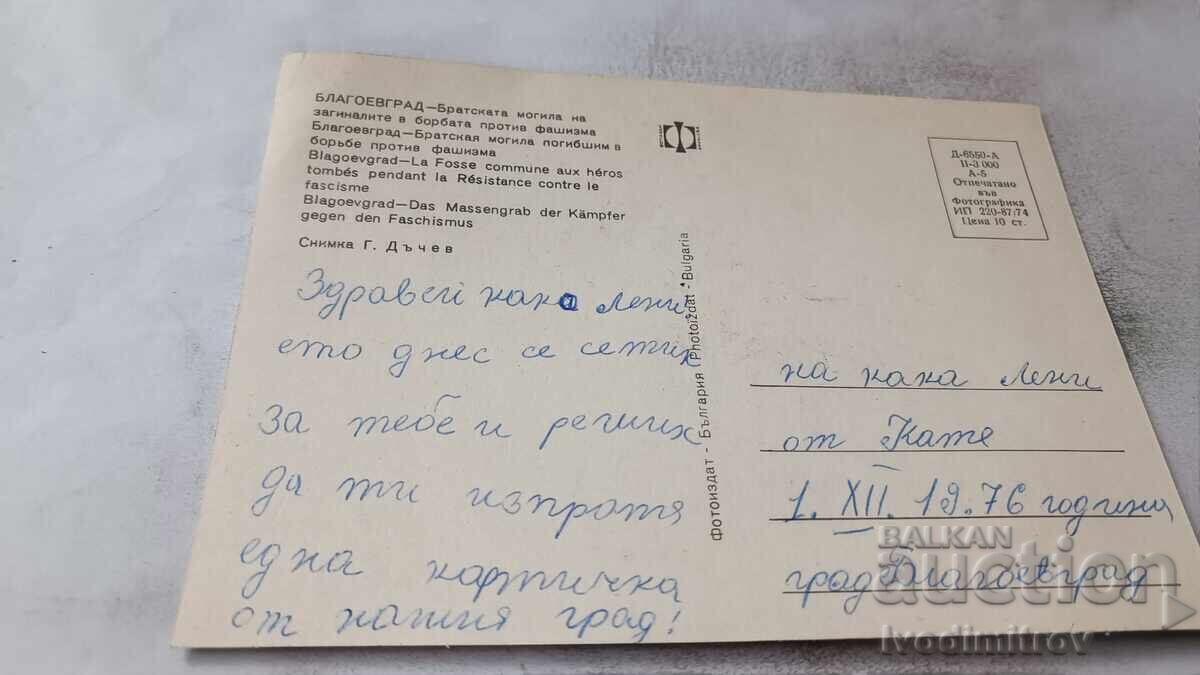 БЛАГОЕВГРАД—Братската могила на
загиналите в борбата против фашизма
Благоевград—Братская могила погибшим в
борьбе против фашизма
Blagoevgrad—La Fosse commune aux héros
tombés pendant la Résistance contre le
fascisme
Blagoevgrad—Das Massengrab der Kämpfer
gegen den Faschismus
Снимка Г. Дъчев
Здравей кака Лени
ето днес се сетих
за тебе и реших
да ти изпратя
една картичка
от нашия град!
фотоиздат - България / Photoizdat - Bulgaria
Д-6550-А
II-3 000
А-5
Отпечатано
във
Фотографика
ИП 220-87:74
Цена 10 ст.
на кака Лени
от Катя
1. XII. 19.76 година
град Благоевград
BALKAN
auction
Ivodimitrov